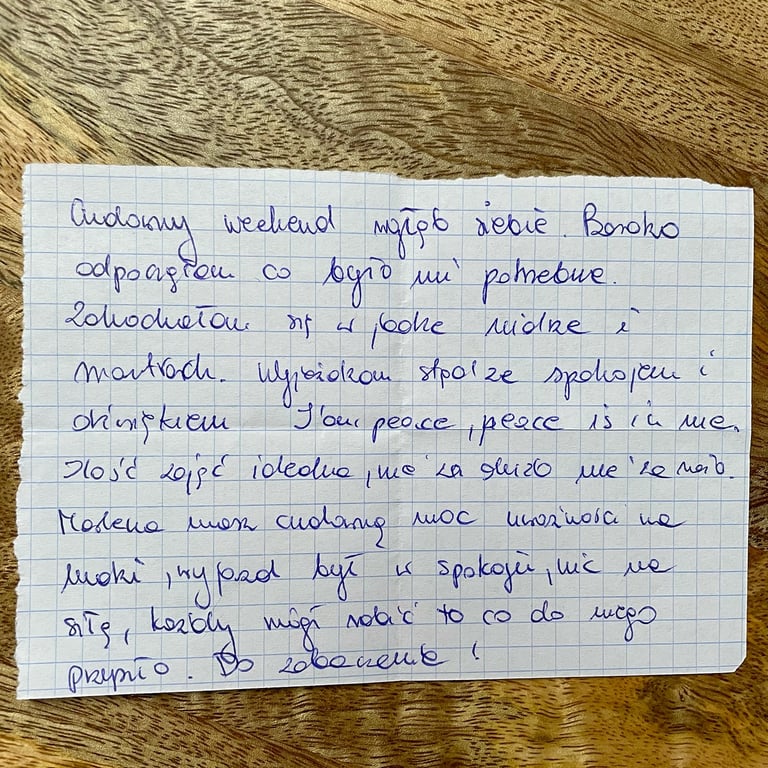 Cudowny weekend wgłąb siebie. Bardzo
odpoczęłam co było mi potrzebne.
Zakochałam się w jodze nidrze i
mantrach. Wyjeżdżam stąd ze spokojem i
I'am peace, peace is in me.
Ilość zajęć idealna, nie za dużo nie za mało.
Marlena masz cudowną moc uważności na
ludzi, wyjazd był w spokoju, nic na
siłę, każdy mógł robić to co do niego
przyszło. Do zobaczenia!